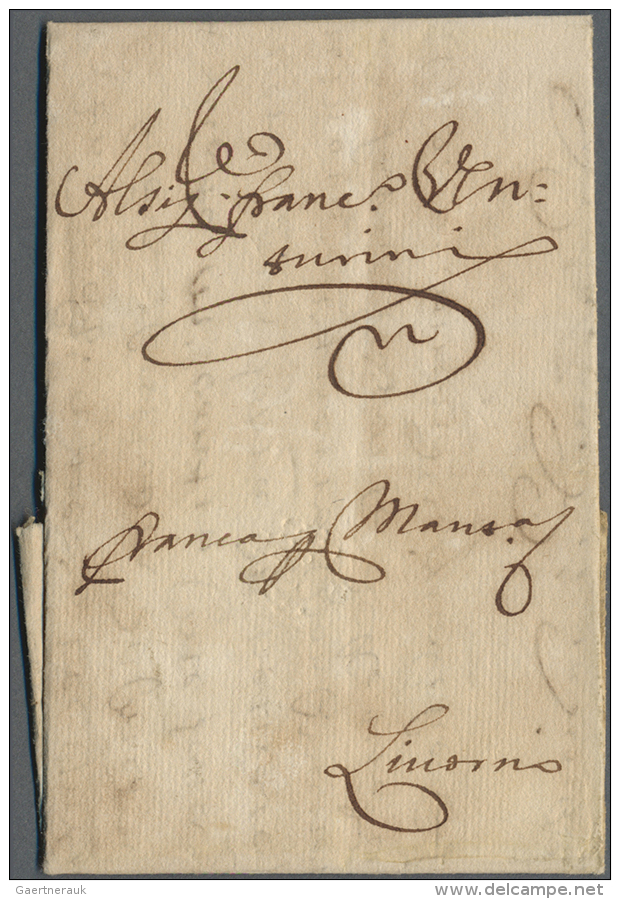 Al Sig.r Franc.o Ven=
turini
franca p Mant.a
Liuorno
Gaertnerauk
www.delcampe.net